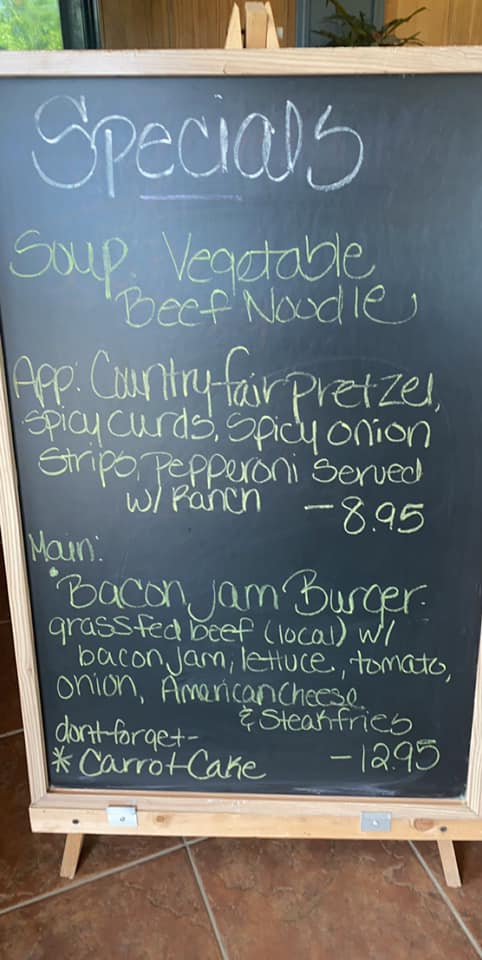 Specials
Soup. Vegetable
Beef Noodle
App: Country fair pretzel,
spicy curds, spicy onion
strips, pepperoni served
w/ Ranch -8.95
Main:
Bacon jam Burger-
grassfed beef (local) w/
bacon jam, lettuce, tomato,
onion, American cheese
& Steakfries
dont forget-
* Carrot Cake -12.95